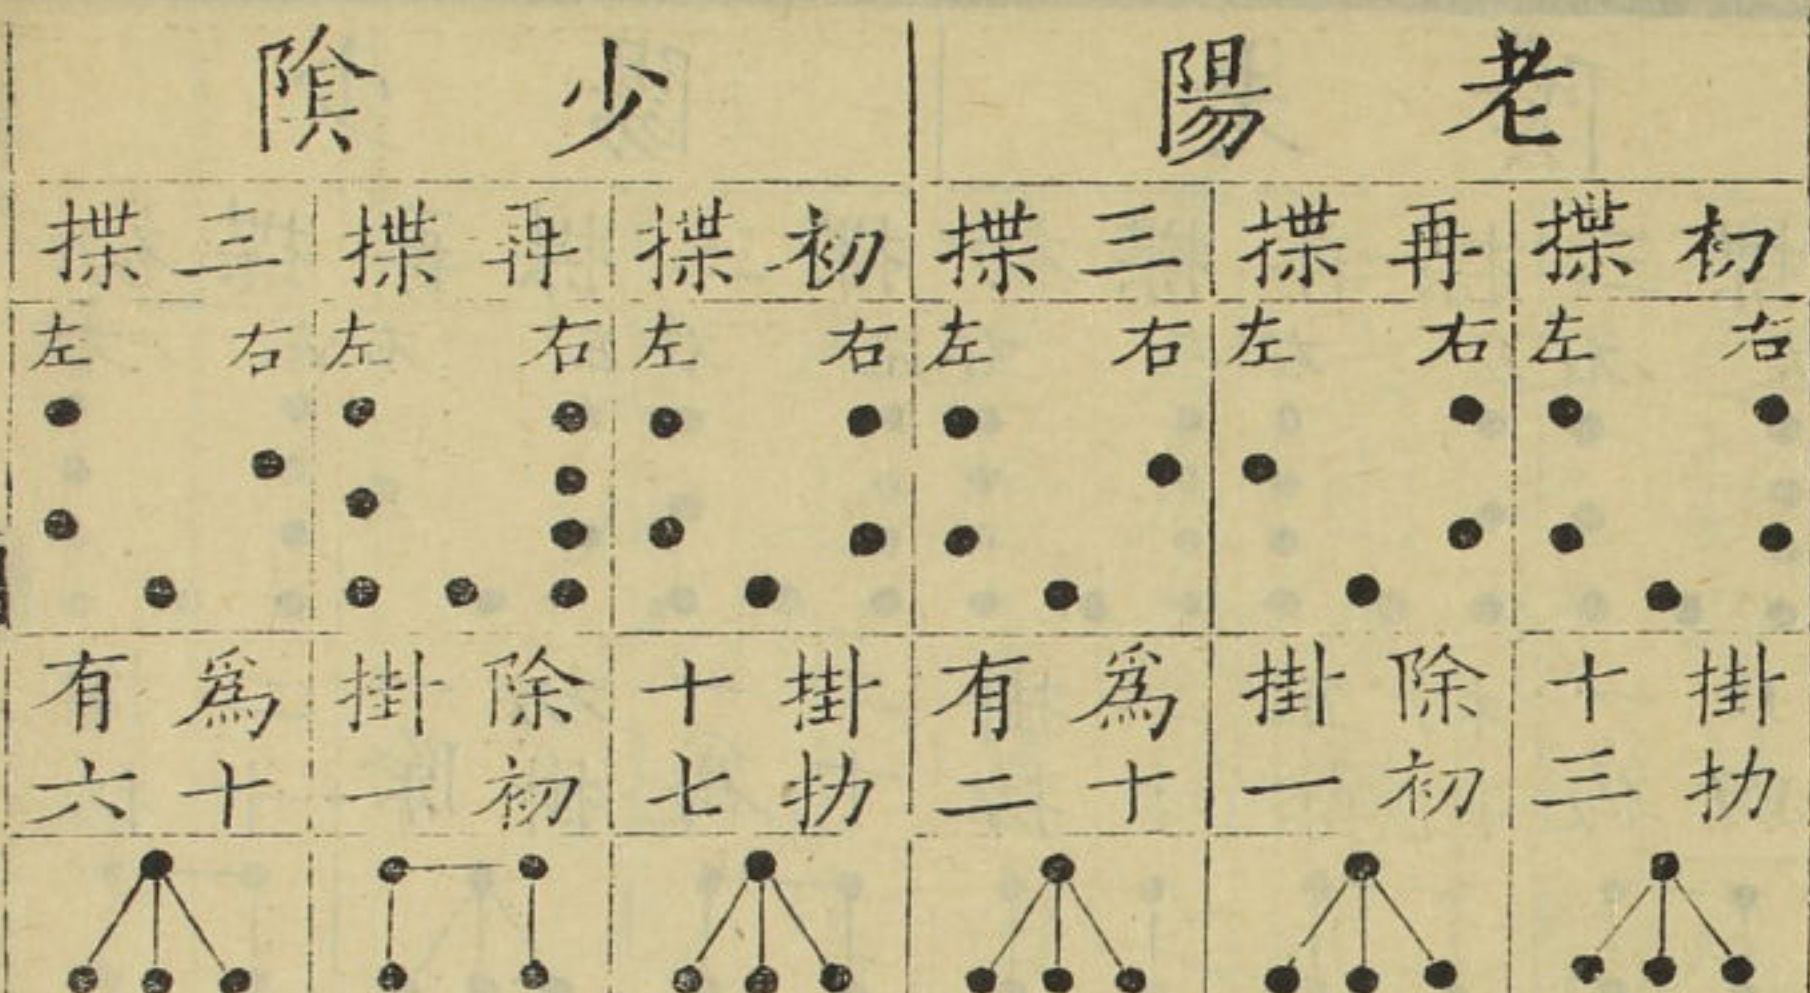 老陽
初揲
再揲
三揲
右 左
右 左
右 左
掛扐
十三
除初
掛一
爲十
有二
少陰
初揲
再揲
三揲
右 左
右 左
右 左
掛扐
十七
除初
掛一
爲十
有六